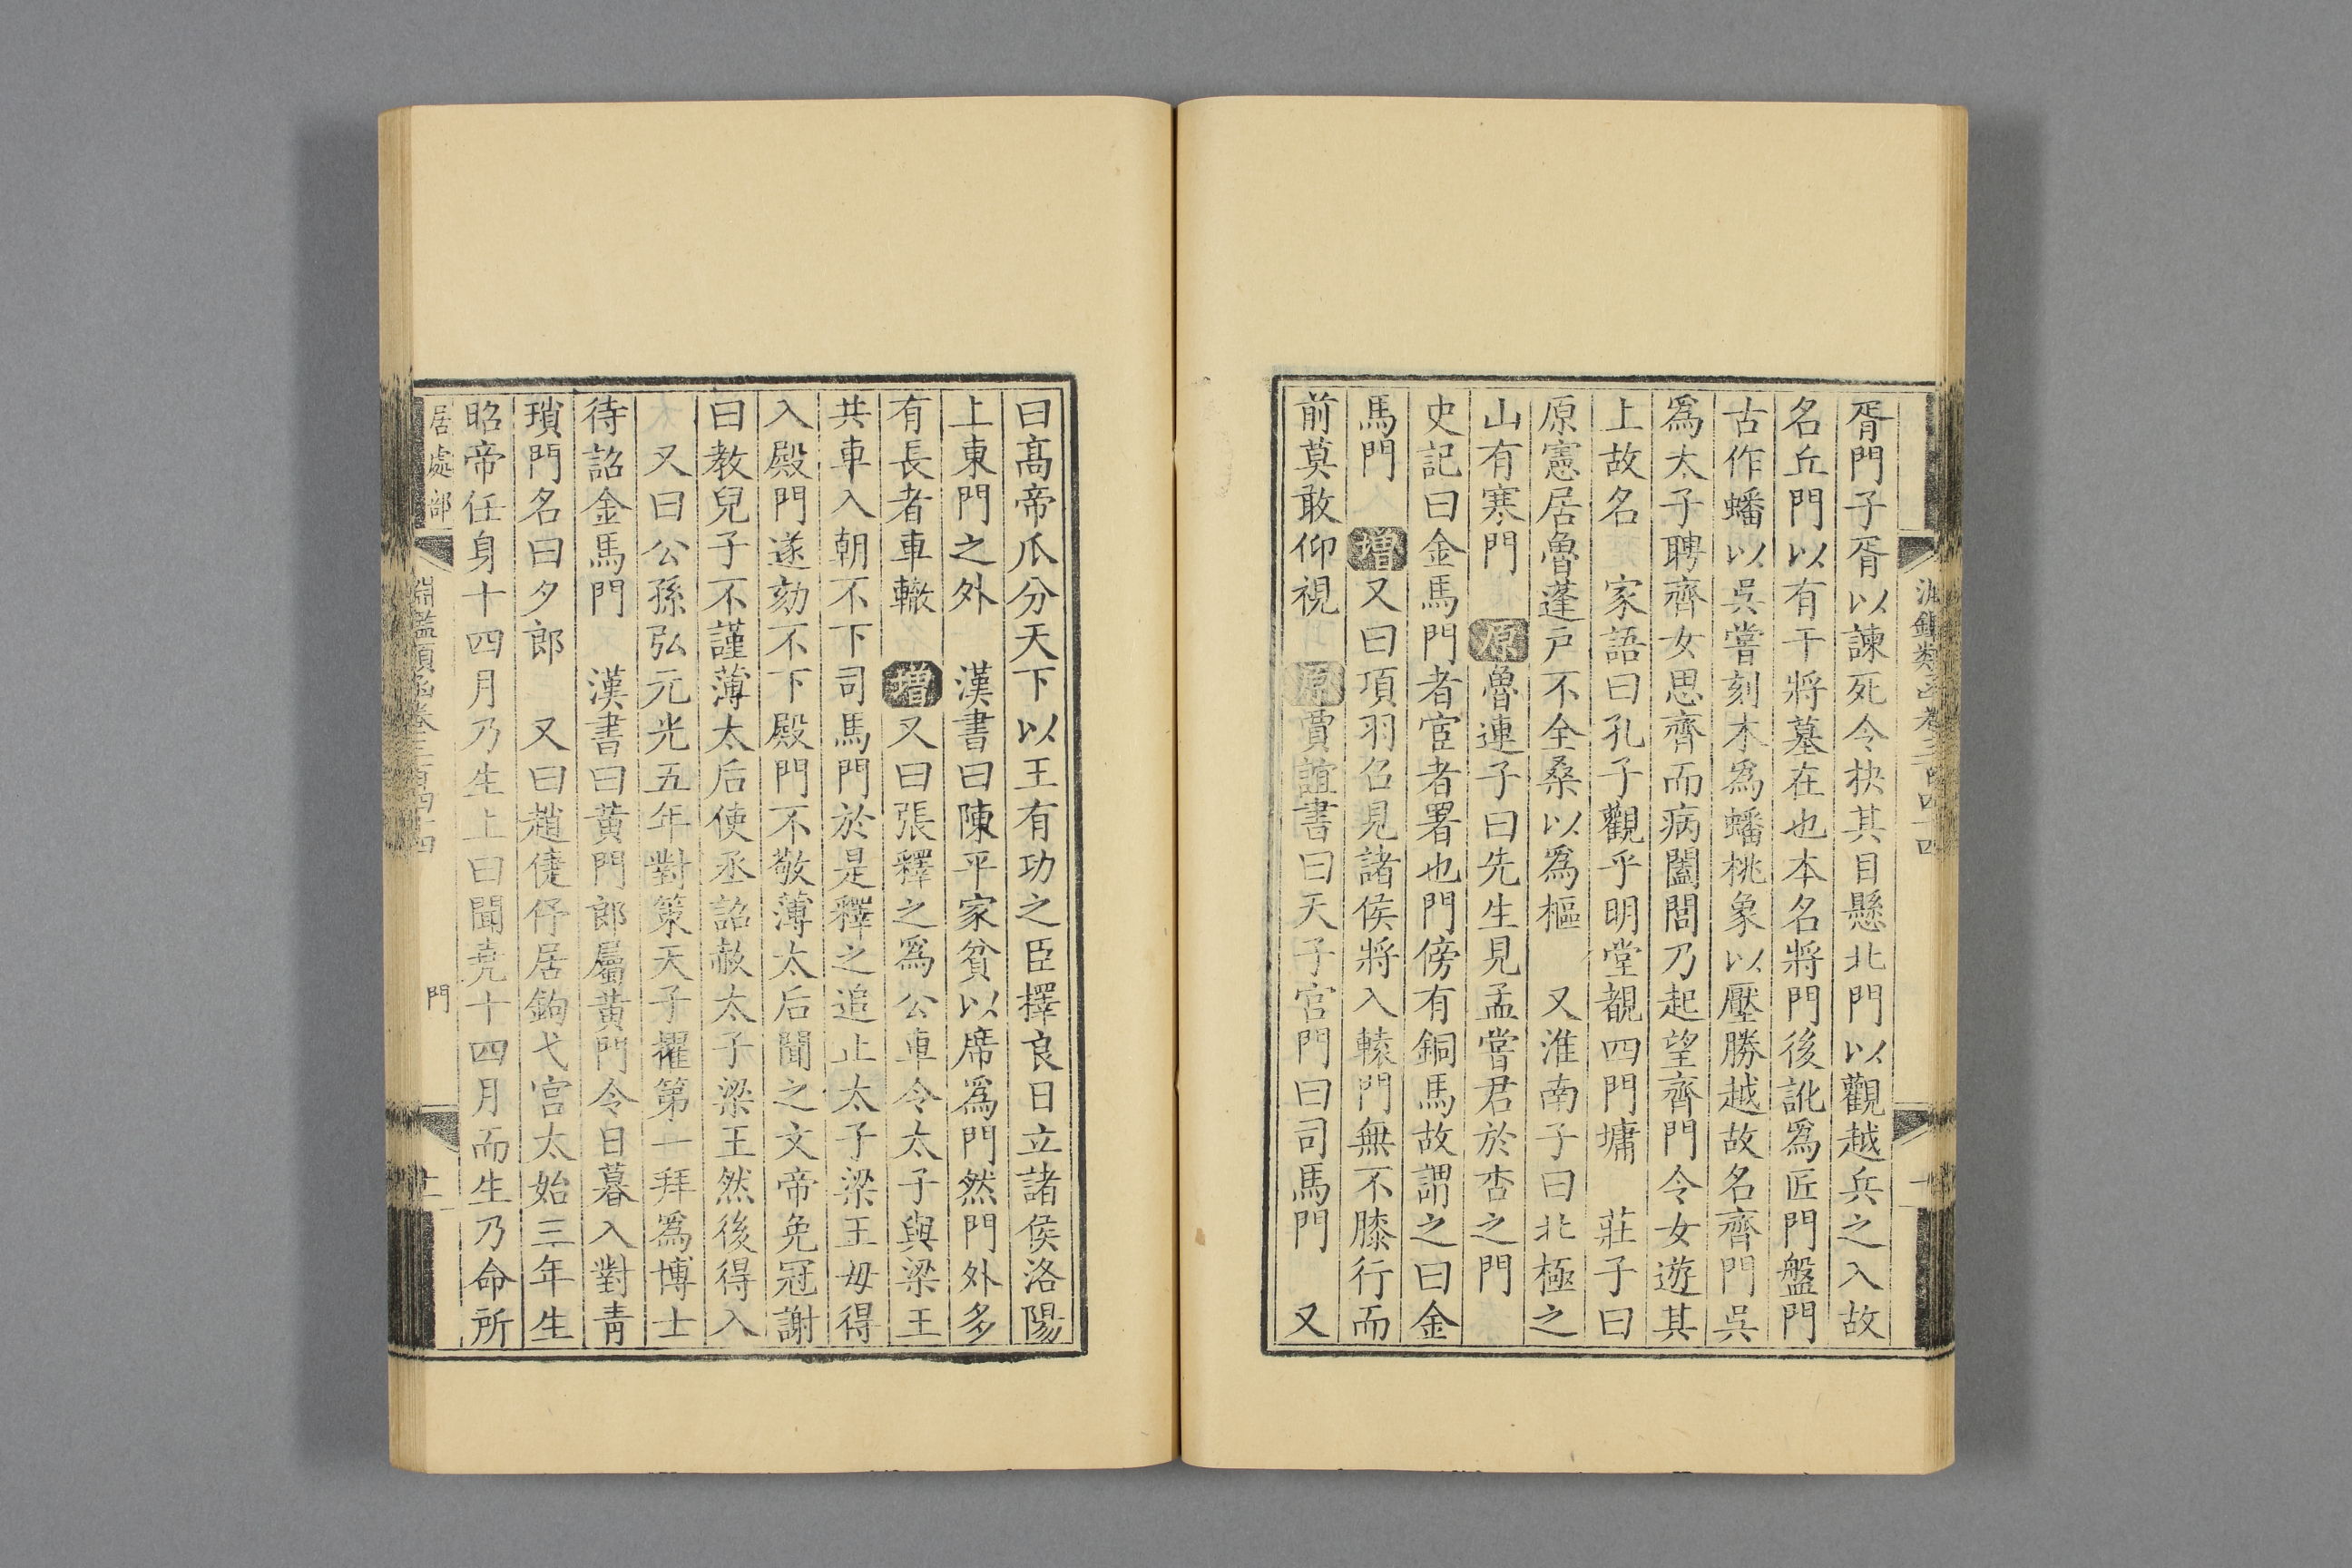 胥門子胥以諫死令抉其目懸北門以觀越兵之入故
名丘門以有干將墓在也本名將門後訛爲匠門盤門
古作蟠以吳嘗刻木爲蟠桃象以壓勝越故名齊門吳
爲太子聘齊女思齊而病闔閭乃起望齊門令女遊其
上故名　家語曰孔子觀乎明堂覩四門墉　莊子曰
原憲居魯蓬戶不全桑以爲樞　又淮南子曰北極之
山有寒門　原魯連子曰先生見孟嘗君於杏之門
史記曰金馬門者宦者署也門傍有銅馬故謂之曰金
馬門　增又曰項羽召見諸侯將入轅門無不膝行而
前莫敢仰視　原賈誼書曰天子宮門曰司馬門　又
曰高帝瓜分天下以王有功之臣擇良日立諸侯洛陽
上東門之外　漢書曰陳平家貧以席爲門然門外多
有長者車轍　增又曰張釋之爲公車令太子與梁王
共車入朝不下司馬門於是釋之追止太子梁王毋得
入殿門遂劾不下殿門不敬薄太后聞之文帝免冠謝
曰教兒子不謹薄太后使丞詔赦太子梁王然後得入
又曰公孫弘元光五年對策天子擢第一拜爲博士
待詔金馬門　漢書曰黃門郎屬黃門令日暮入對青
瑣門名曰夕郎　又曰趙倢伃居鉤弋宮太始三年生
昭帝任身十四月乃生上曰聞堯十四月而生乃命所
居處部　淵鑑類函卷三百四十四　門